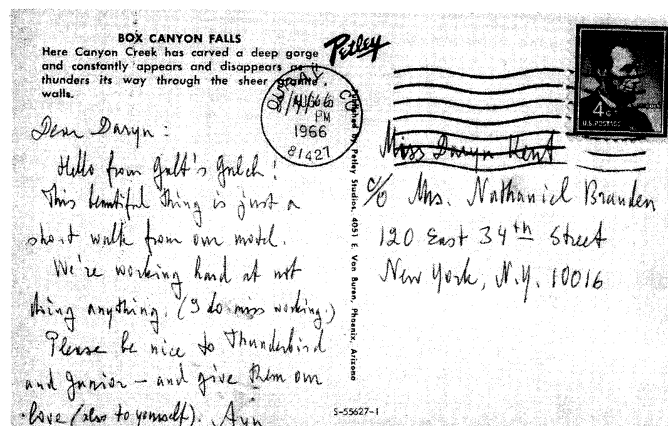 BOX CANYON FALLS
Here Canyon Creek has carved a deep gorge
and constantly appears and disappears as it
thunders its way through the sheer granite
walls.
Petley
Dear Daryn:
Hello from Galt's Gulch!
This beautiful thing is just a
short walk from our motel.
We're working hard at not
doing anything. (I do miss working.)
Please be nice to Thunderbird
and Junior – and give them our
love (also to yourself). Ayn
OURAY, CO
PM
1966
81427
4¢
U.S. POSTAGE
Published by Petley Studios, 4051 E. Van Buren, Phoenix, Arizona
Miss Daryn Kent
c/o Mrs. Nathaniel Branden
120 East 34th Street
New York, N.Y. 10016
S-55627-1